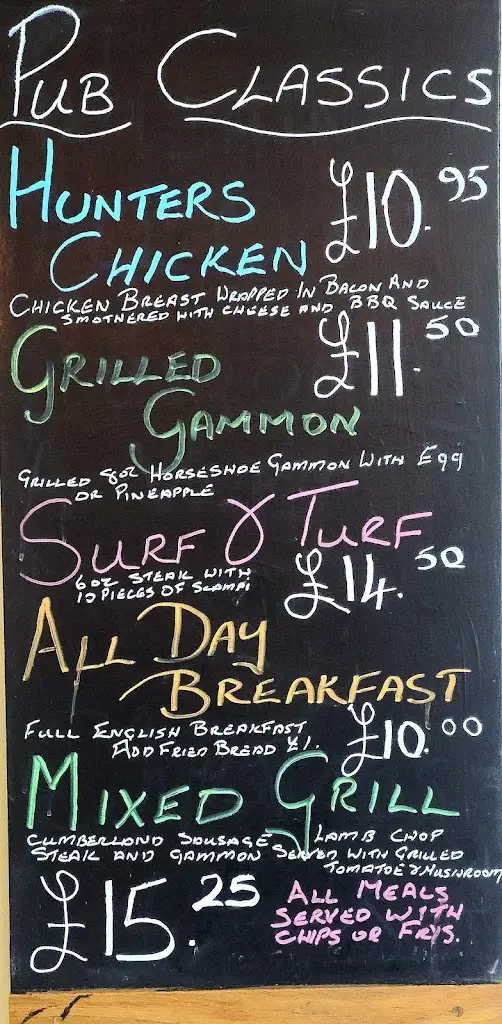 PUB CLASSICS
HUNTERS
CHICKEN
£10.95
CHICKEN BREAST WRAPPED IN BACON AND
SMOTHERED WITH CHEESE AND BBQ SAUCE
GRILLED
GAMMON
£11.50
GRILLED 8oz HORSESHOE GAMMON WITH Egg
OR PINEAPPLE
SURF & TURF
6oz STEAK WITH
10 PIECES OF SCAMPI
£14.50
ALL DAY
BREAKFAST
FULL ENGLISH BREAKFAST
ADD FRIED BREAD £1.
£10.00
MIXED GRILL
CUMBERLAND SAUSAGE LAMB CHOP
STEAK AND GAMMON SERVED WITH GRILLED
TOMATOE & MUSHROOM
£15.25
ALL MEALS
SERVED WITH
CHIPS OR FRYS.